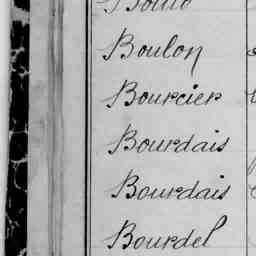 Boulon
Bourcier
Bourdais
Bourdais
Bourdel